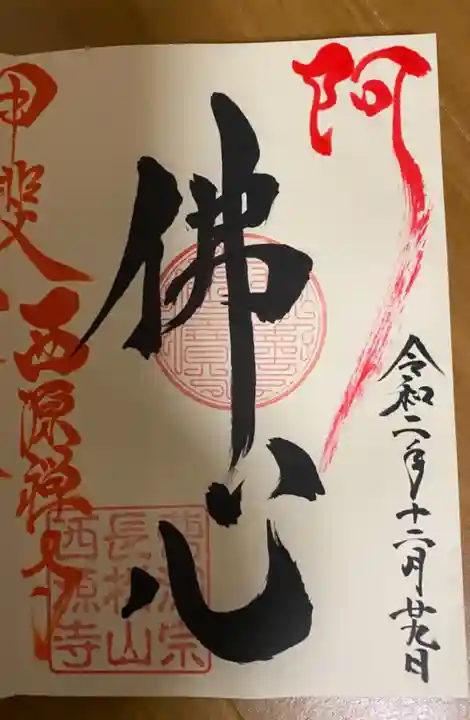 阿
令和二年十二月廿九日
佛心
甲斐
西源禅寺
曹洞宗
長松山
西源寺